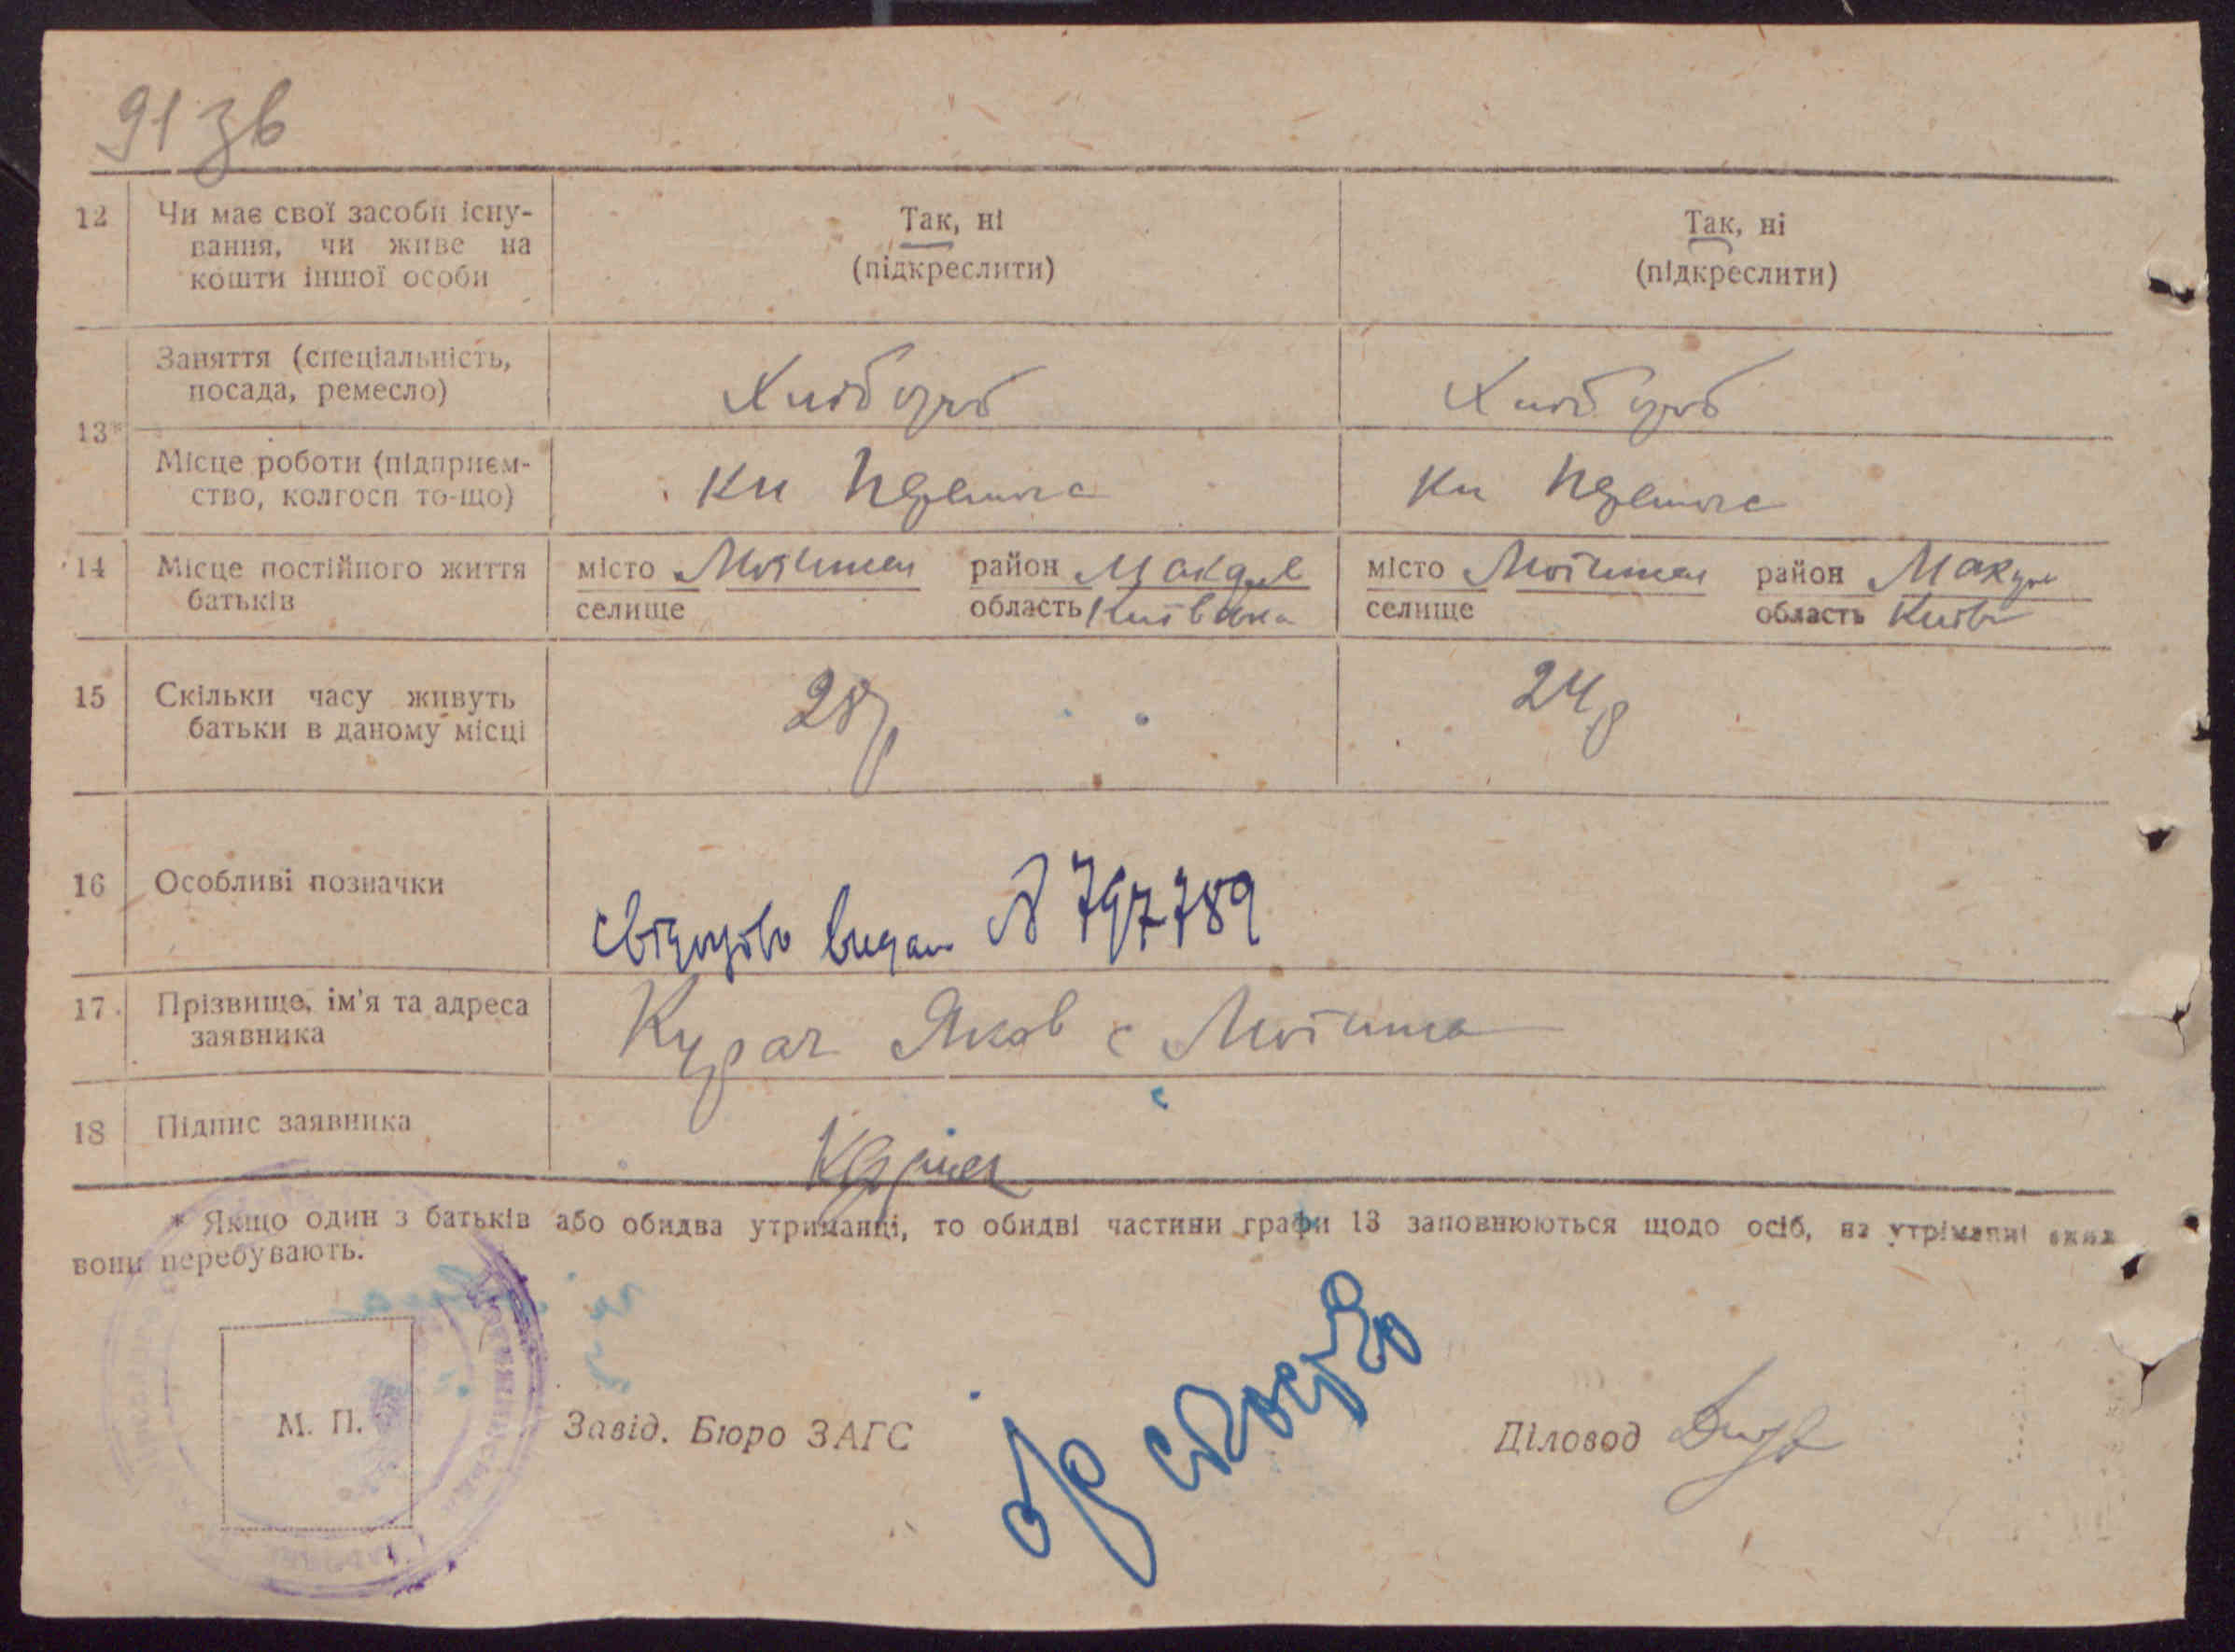 91 зв
12 Чи має свої засоби існу- Так, ні Так, ні
вання, чи живе на (підкреслити) (підкреслити)
кошти іншої особи
Заняття (спеціальність, Хлібороб Хлібороб
посада, ремесло)
13*
Місце роботи (підприєм-
ство, колгосп то-що)
14 Місце постійного життя місто район Макар місто район Макар
батьків селище область Київська селище область Київ
15 Скільки часу живуть 28 р 24 р
батьки в даному місці
16 Особливі позначки
свідоцтво видан № 797789
17 Прізвище, ім'я та адреса Курач Яков с
заявника
18 Підпис заявника
* Якщо один з батьків або обидва утриманці, то обидві частини графи 13 заповнюються щодо осіб, на утріманні яких
вони перебувають.
М. П. Завід. Бюро ЗАГС Діловод